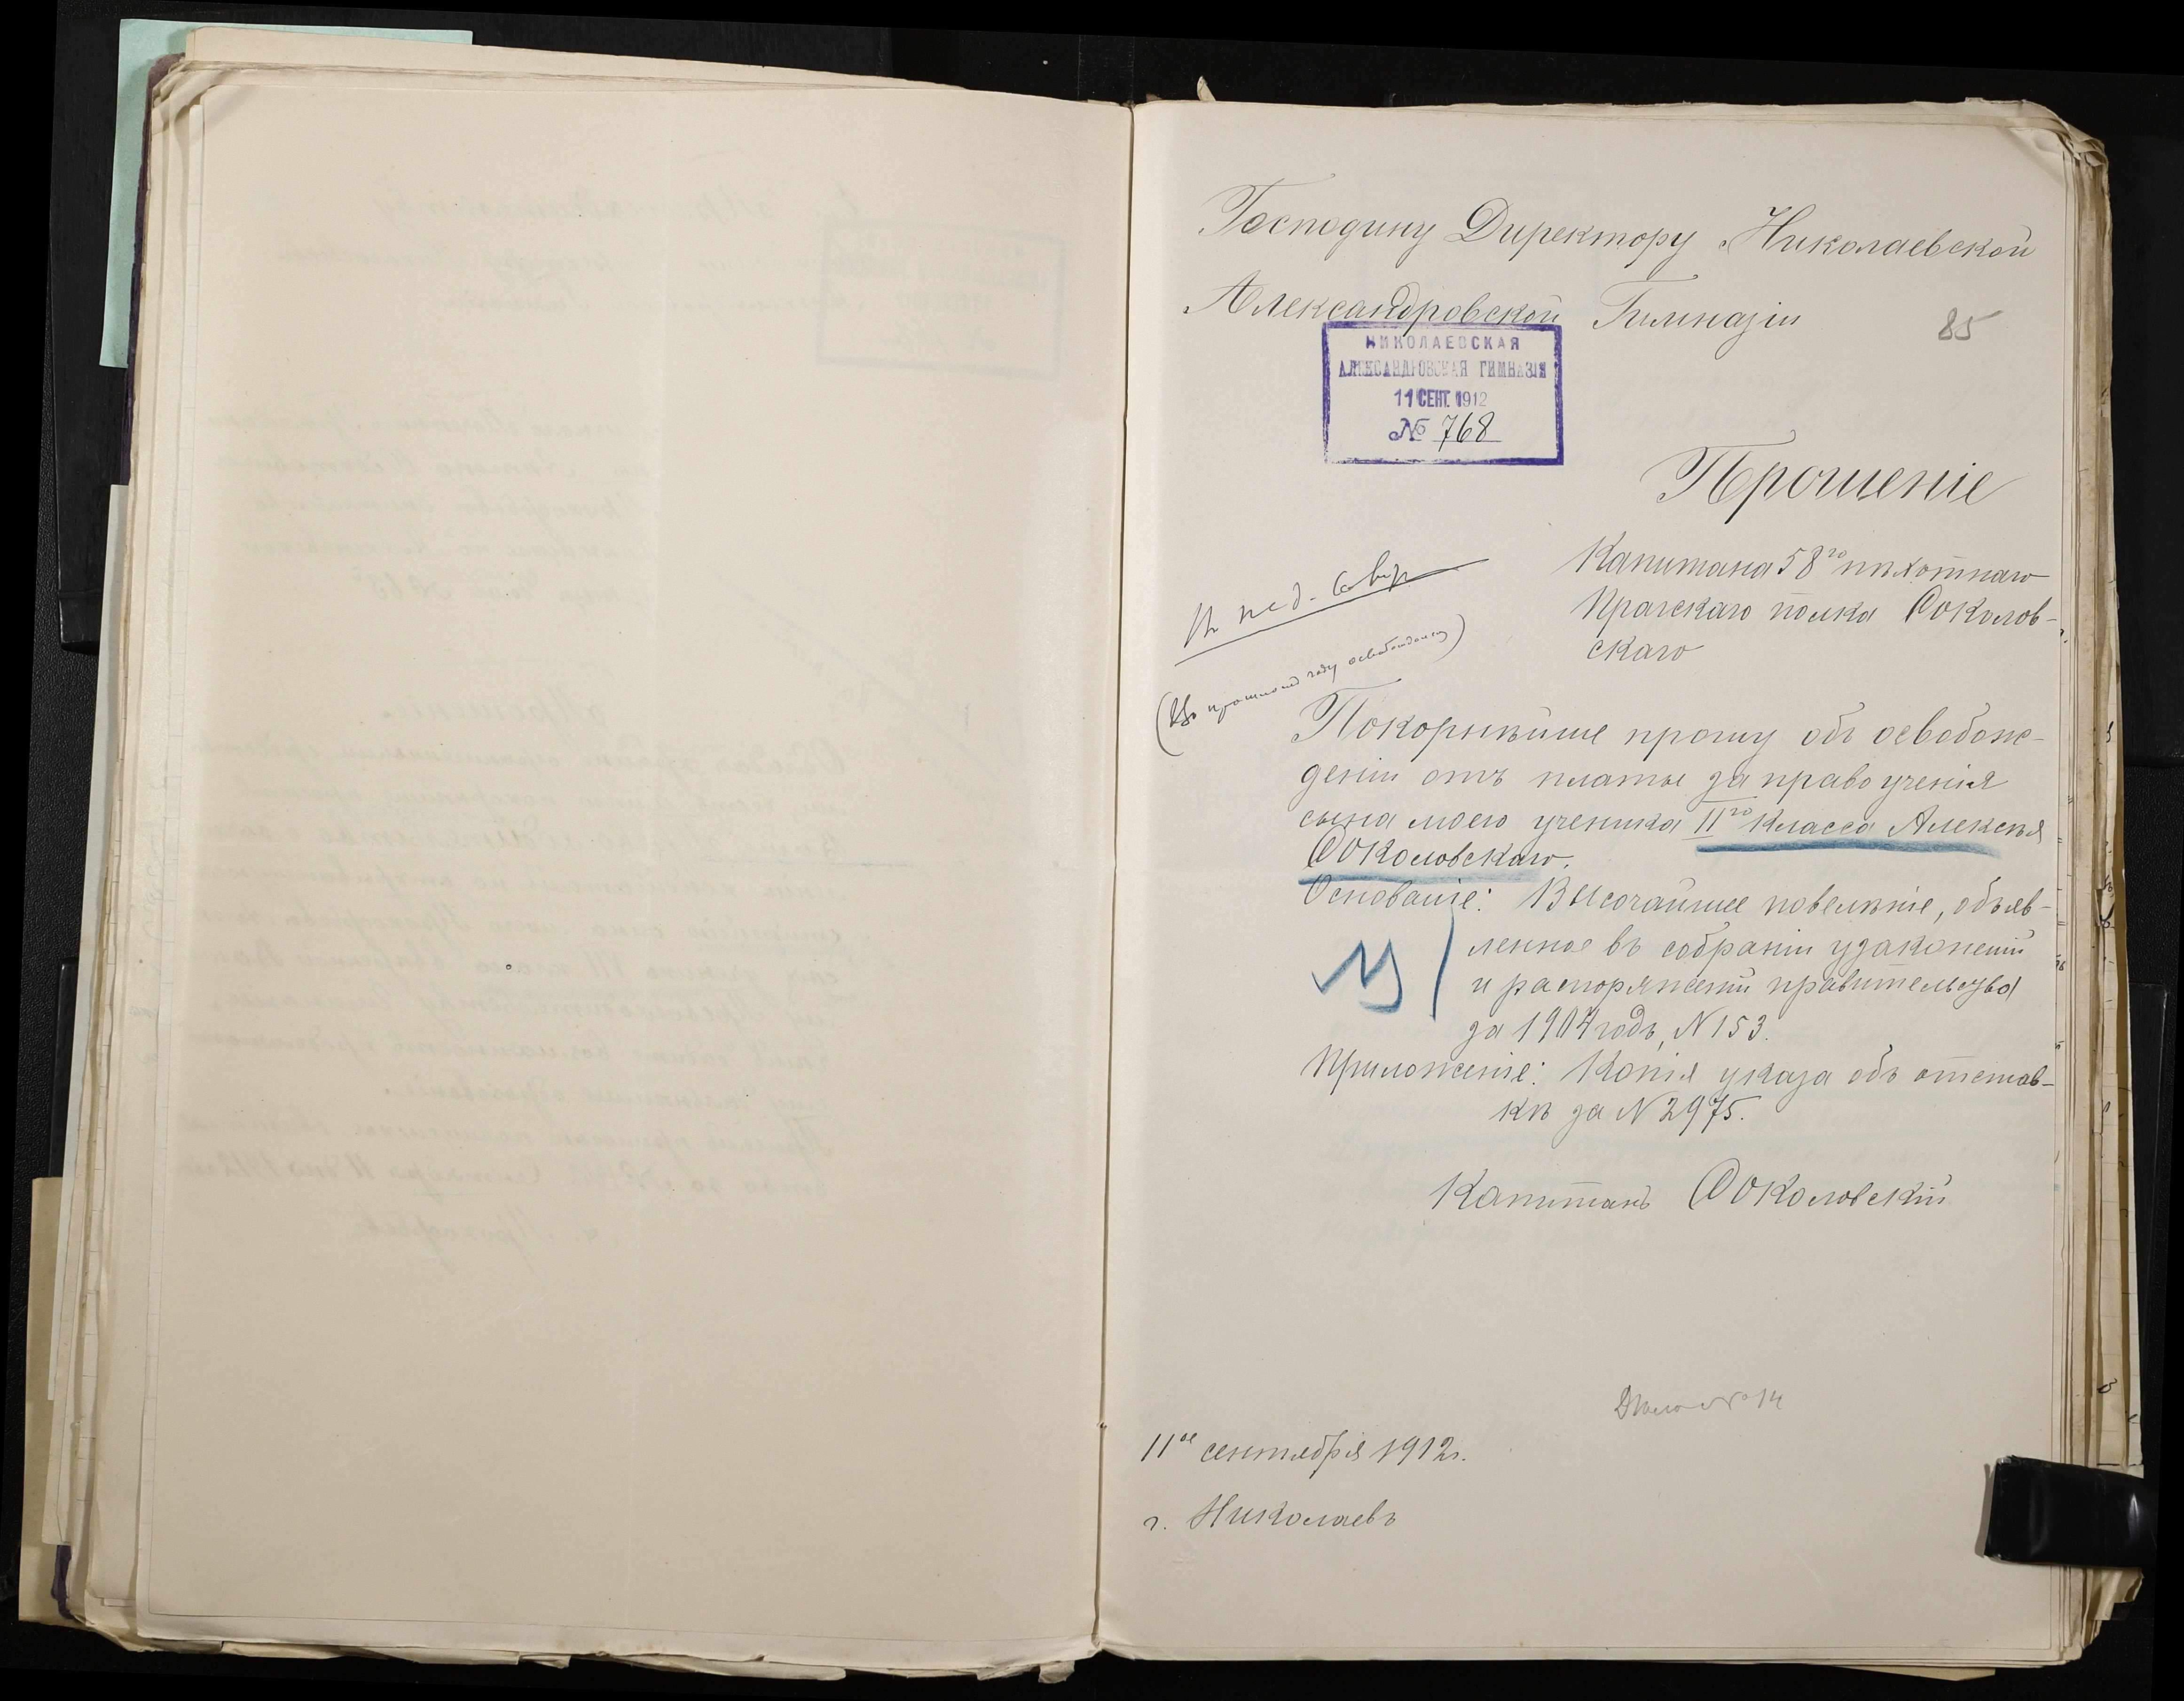 Господину Директору Николаевской
Александровской Гимназіи
85
НИКОЛАЕВСКАЯ
АЛЕКСАНДРОВСКАЯ ГИМНАЗІЯ
11 СЕНТ. 1912
№ 768
Прошеніе
Капитана 58го пѣхотнаго
Прагскаго полка Соколов-
скаго
Въ пед. совѣтъ
(Въ прошломъ году освобожденъ)
Покорнѣйше прошу объ освобож-
деніи отъ платы за право ученія
сына моего ученика IIго класса Алексѣя
Соколовскаго.
Основаніе: Высочайшее повелѣніе, объяв-
ленное въ собраніи узаконеній
и распоряженій правительства
за 1904 годъ, N 153.
Приложеніе: Копія указа объ отстав-
кѣ за N 2975.
Капитанъ Соколовскій
Дѣло № 14
11ое сентября 1912 г.
г. Николаевъ